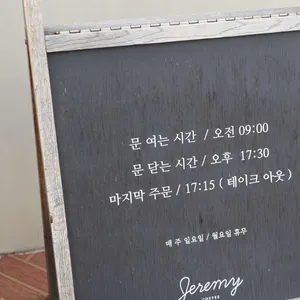 문 여는 시간 / 오전 09:00
문 닫는 시간 / 오후 17:30
마지막 주문 / 17:15 ( 테이크 아웃 )
매 주 일요일 / 월요일 휴무
Jeremy
COFFEE